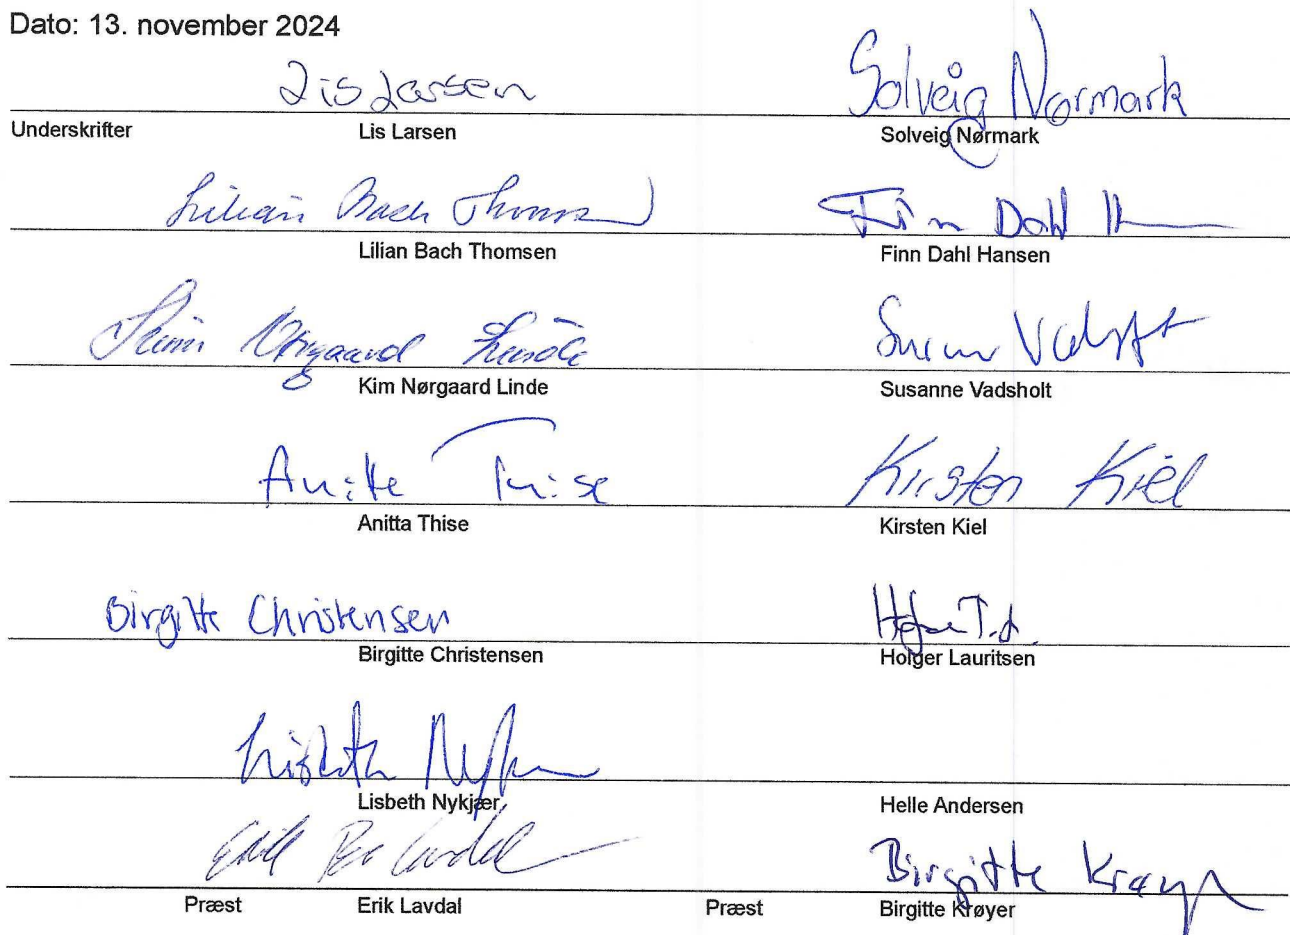 Dato: 13. november 2024
Lis Larsen Solveig Nørmark
Underskrifter Lis Larsen Solveig Nørmark
Lilian Bach Thomsen Finn Dahl H
Lilian Bach Thomsen Finn Dahl Hansen
Kim Nørgaard Linde
Kim Nørgaard Linde Susanne Vadsholt
Anitta Thise Kirsten Kiel
Anitta Thise Kirsten Kiel
Birgitte Christensen
Birgitte Christensen Holger Lauritsen
Lisbeth
Lisbeth Nykjær Helle Andersen
Erik Lavdal Birgitte Krøyer
Præst Erik Lavdal Præst Birgitte Krøyer